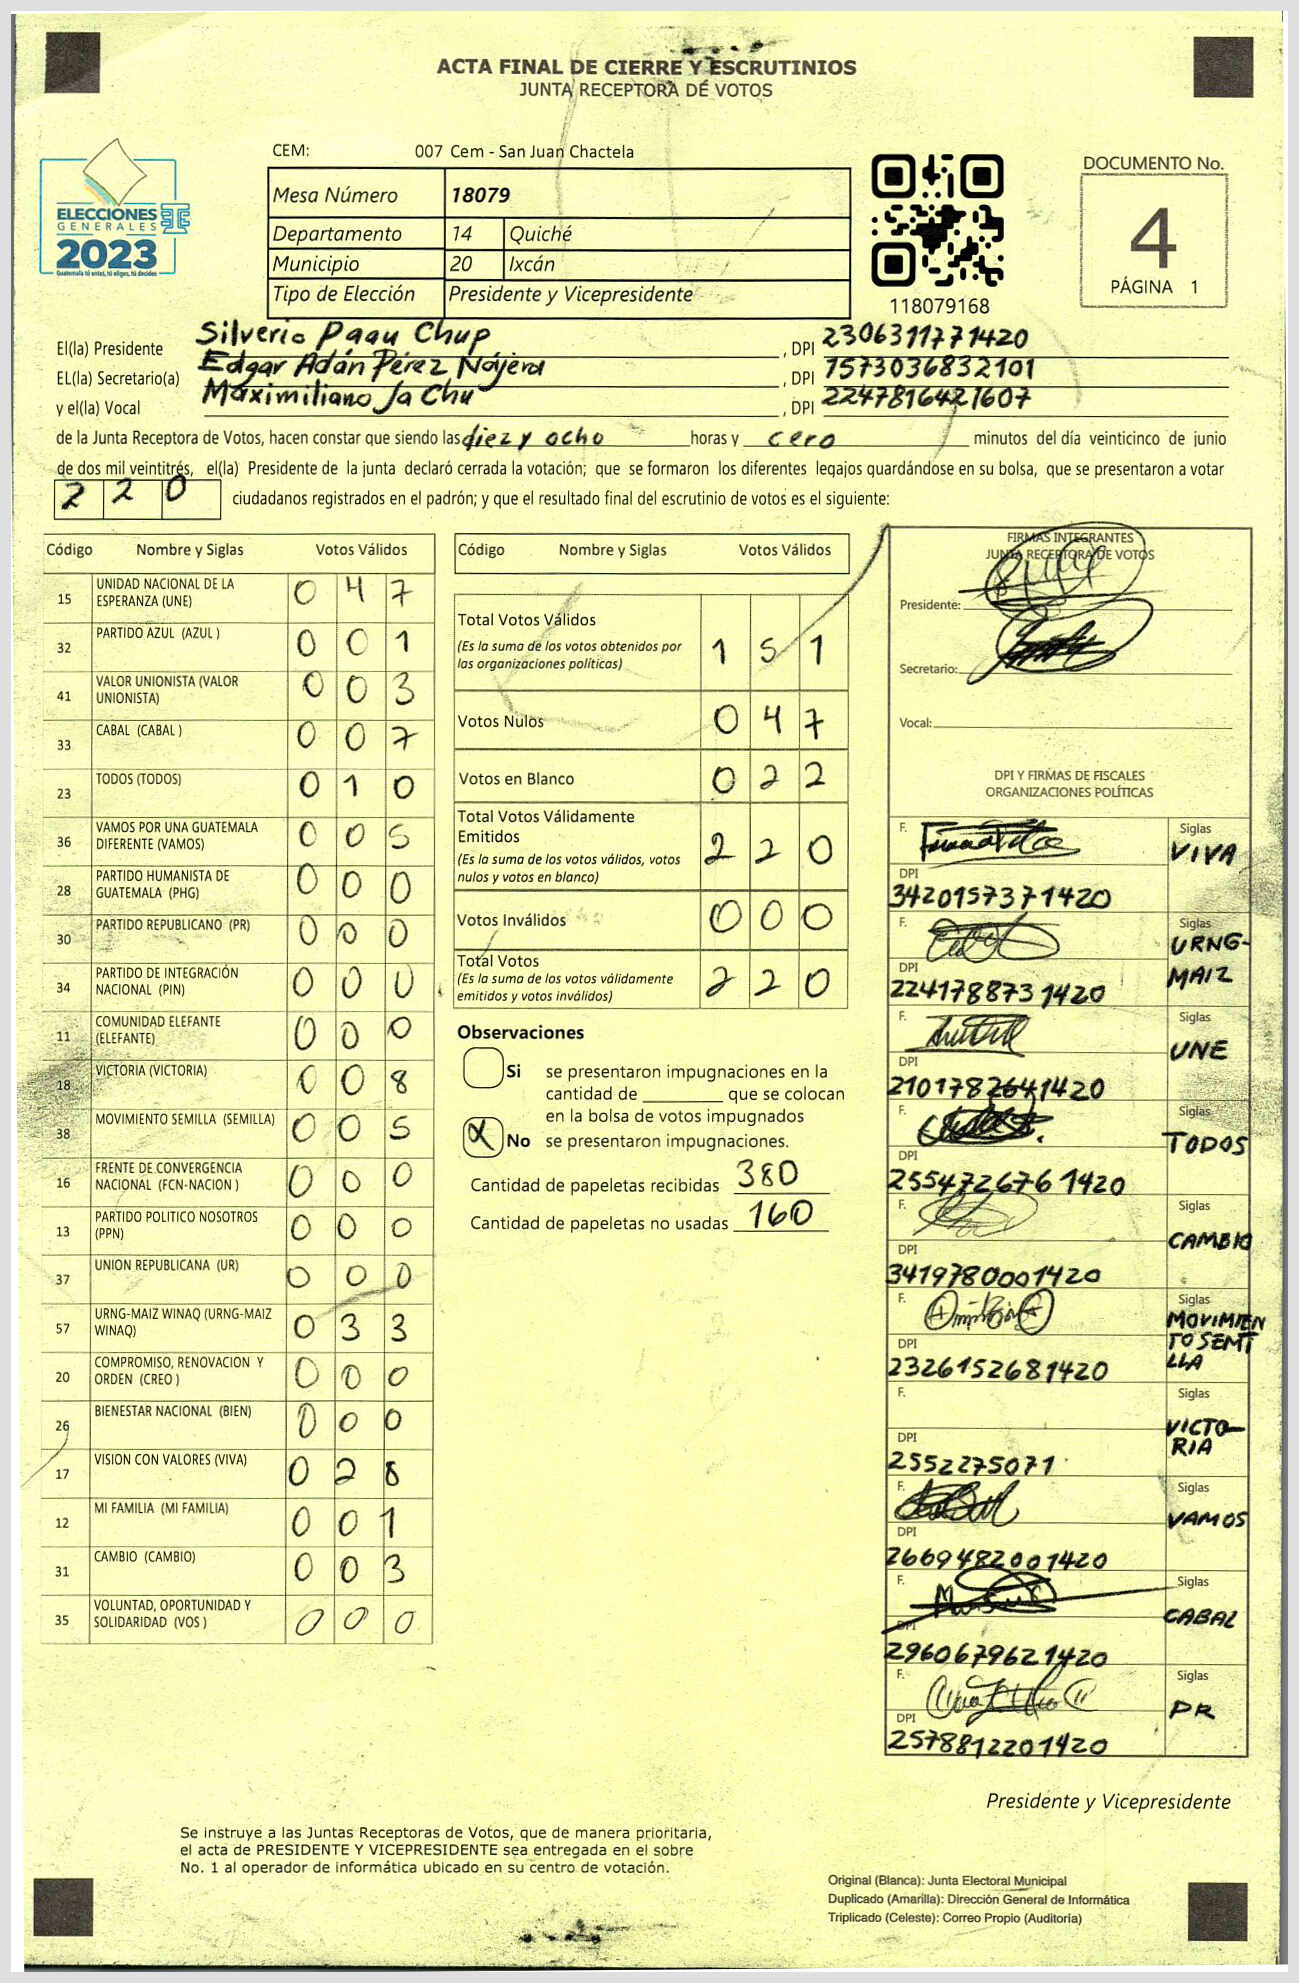 ACTA FINAL DE CIERRE Y ESCRUTINIOS
JUNTA RECEPTORA DE VOTOS
CEM: 007 Cem - San Juan Chactela
ELECCIONES
GENERALES
2023
Guatemala tú eres, tú eliges, tú decides
Mesa Número 18079
Departamento 14 Quiché
Municipio 20 Ixcán
Tipo de Elección Presidente y Vicepresidente
118079168
DOCUMENTO No.
4
PÁGINA 1
El(la) Presidente Silverio Paau Chup , DPI 2306311771420
EL(la) Secretario(a) Edgar Adán Pérez Nájera , DPI 1573036832101
y el(la) Vocal Maximiliano Ja Chu , DPI 2247816421607
de la Junta Receptora de Votos, hacen constar que siendo las diez y ocho horas y cero minutos del día veinticinco de junio
de dos mil veintitrés, el(la) Presidente de la junta declaró cerrada la votación; que se formaron los diferentes legajos guardándose en su bolsa, que se presentaron a votar
220 ciudadanos registrados en el padrón; y que el resultado final del escrutinio de votos es el siguiente:
Código Nombre y Siglas Votos Válidos
15 UNIDAD NACIONAL DE LA
ESPERANZA (UNE) 0 4 7
32 PARTIDO AZUL (AZUL ) 0 0 1
41 VALOR UNIONISTA (VALOR
UNIONISTA) 0 0 3
33 CABAL (CABAL ) 0 0 7
23 TODOS (TODOS) 0 1 0
36 VAMOS POR UNA GUATEMALA
DIFERENTE (VAMOS) 0 0 5
28 PARTIDO HUMANISTA DE
GUATEMALA (PHG) 0 0 0
30 PARTIDO REPUBLICANO (PR) 0 0 0
34 PARTIDO DE INTEGRACIÓN
NACIONAL (PIN) 0 0 0
11 COMUNIDAD ELEFANTE
(ELEFANTE) 0 0 0
18 VICTORIA (VICTORIA) 0 0 8
38 MOVIMIENTO SEMILLA (SEMILLA) 0 0 5
16 FRENTE DE CONVERGENCIA
NACIONAL (FCN-NACION ) 0 0 0
13 PARTIDO POLITICO NOSOTROS
(PPN) 0 0 0
37 UNION REPUBLICANA (UR) 0 0 0
57 URNG-MAIZ WINAQ (URNG-MAIZ
WINAQ) 0 3 3
20 COMPROMISO, RENOVACION Y
ORDEN (CREO ) 0 0 0
26 BIENESTAR NACIONAL (BIEN) 0 0 0
17 VISION CON VALORES (VIVA) 0 2 8
12 MI FAMILIA (MI FAMILIA) 0 0 1
31 CAMBIO (CAMBIO) 0 0 3
35 VOLUNTAD, OPORTUNIDAD Y
SOLIDARIDAD (VOS ) 0 0 0
Código Nombre y Siglas Votos Válidos
Total Votos Válidos
(Es la suma de los votos obtenidos por
las organizaciones políticas) 1 5 1
Votos Nulos 0 4 7
Votos en Blanco 0 2 2
Total Votos Válidamente
Emitidos
(Es la suma de los votos válidos, votos
nulos y votos en blanco) 2 2 0
Votos Inválidos 0 0 0
Total Votos
(Es la suma de los votos válidamente
emitidos y votos inválidos) 2 2 0
Observaciones
Si se presentaron impugnaciones en la
cantidad de ________ que se colocan
en la bolsa de votos impugnados
X No se presentaron impugnaciones.
Cantidad de papeletas recibidas 380
Cantidad de papeletas no usadas 160
FIRMAS INTEGRANTES
JUNTA RECEPTORA DE VOTOS
Presidente:
Secretario:
Vocal:
DPI Y FIRMAS DE FISCALES
ORGANIZACIONES POLÍTICAS
F. Siglas
VIVA
DPI
3420157371420
F. Siglas
URNG-
MAIZ
DPI
2241788731420
F. Siglas
UNE
DPI
2101782641420
F. Siglas
TODOS
DPI
2554726761420
F. Siglas
CAMBIO
DPI
3419780001420
F. Siglas
MOVIMIEN
TO SEMI
LLA
DPI
2326152681420
F. Siglas
VICTO-
RIA
DPI
2552275071
F. Siglas
VAMOS
DPI
2669482001420
F. Siglas
CABAL
DPI
2960679621420
F. Siglas
PR
DPI
2578812201420
Presidente y Vicepresidente
Se instruye a las Juntas Receptoras de Votos, que de manera prioritaria,
el acta de PRESIDENTE Y VICEPRESIDENTE sea entregada en el sobre
No. 1 al operador de informática ubicado en su centro de votación.
Original (Blanca): Junta Electoral Municipal
Duplicado (Amarilla): Dirección General de Informática
Triplicado (Celeste): Correo Propio (Auditoría)